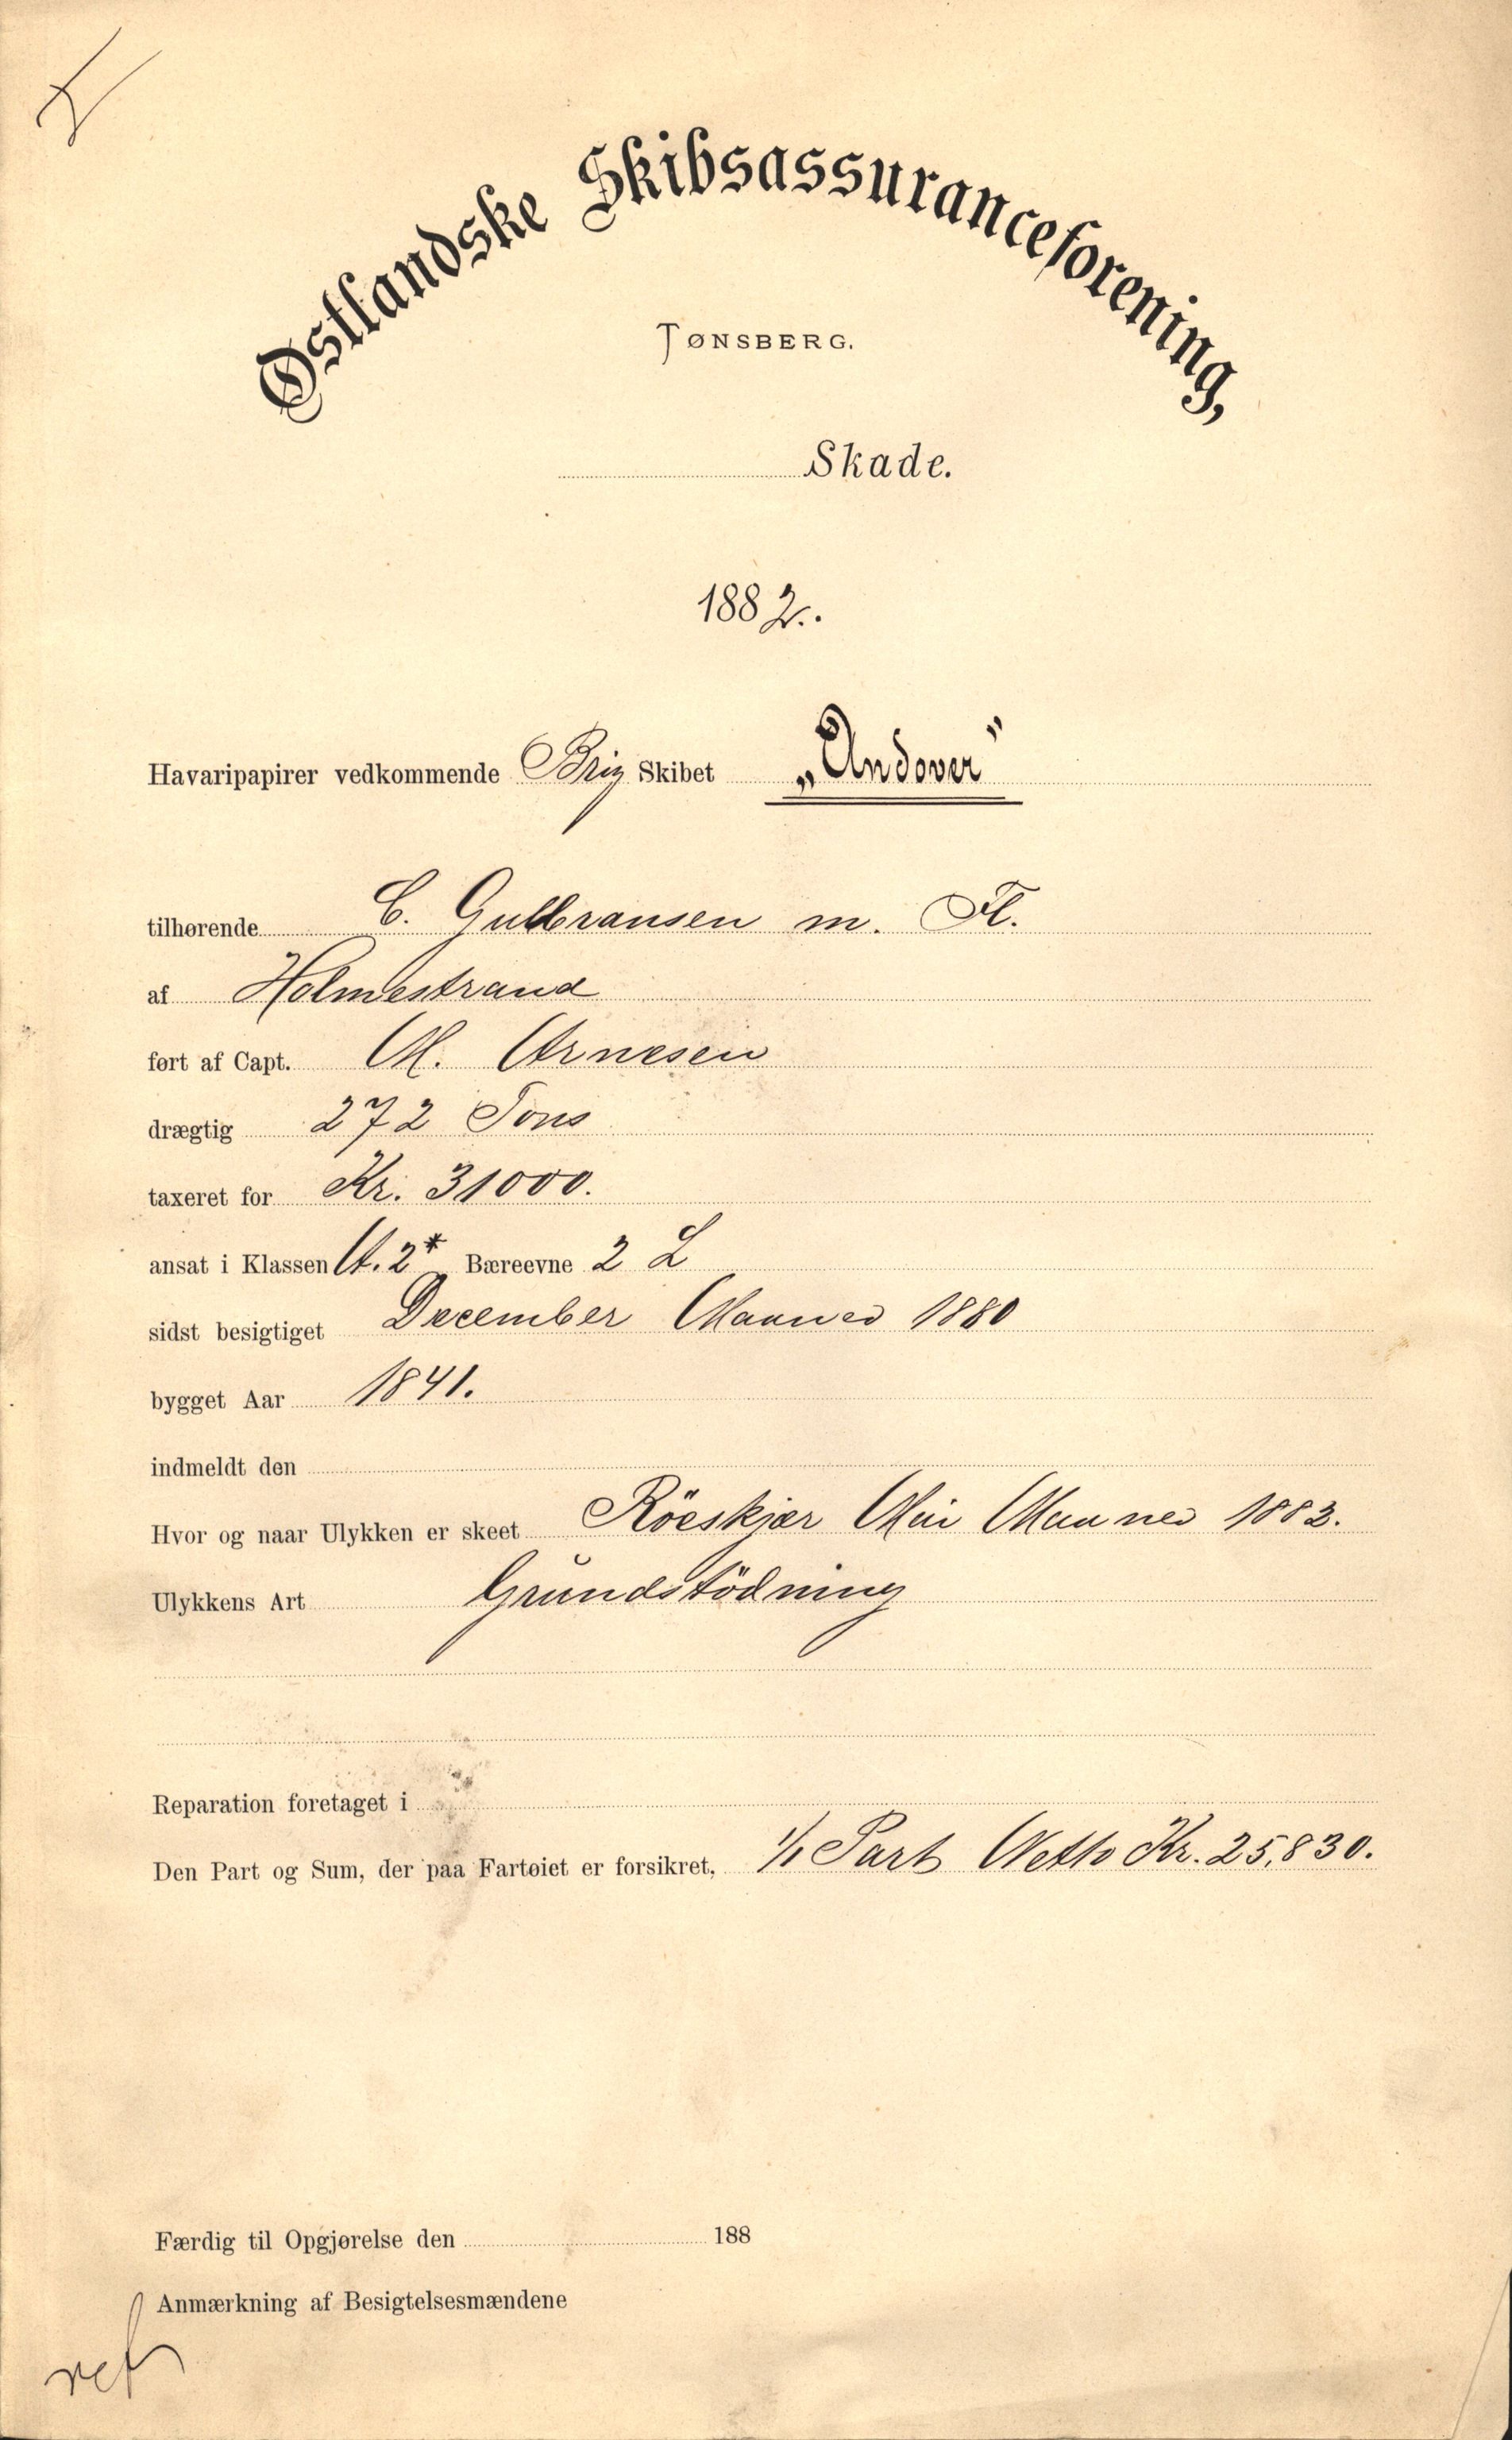 Østlandske Skibsassuranceforening,
TØNSBERG.
Skade.
1882.
Havaripapirer vedkommende Brig Skibet „Andover"
tilhørende C. Gulbransen m. Fl.
af Holmestrand
ført af Capt. M. Arnesen
drægtig 272 Tons
taxeret for Kr. 31000.
ansat i Klassen A. 2* Bæreevne 2 L
sidst besigtiget December Maaned 1880
bygget Aar 1841.
indmeldt den
Hvor og naar Ulykken er skeet Röeskjær Mai Maaned 1882.
Ulykkens Art Grundstödning
Reparation foretaget i
Den Part og Sum, der paa Fartøiet er forsikret, 1/1 Part Netto Kr. 25,830.
Færdig til Opgjørelse den 188
Anmærkning af Besigtelsesmændene
ref